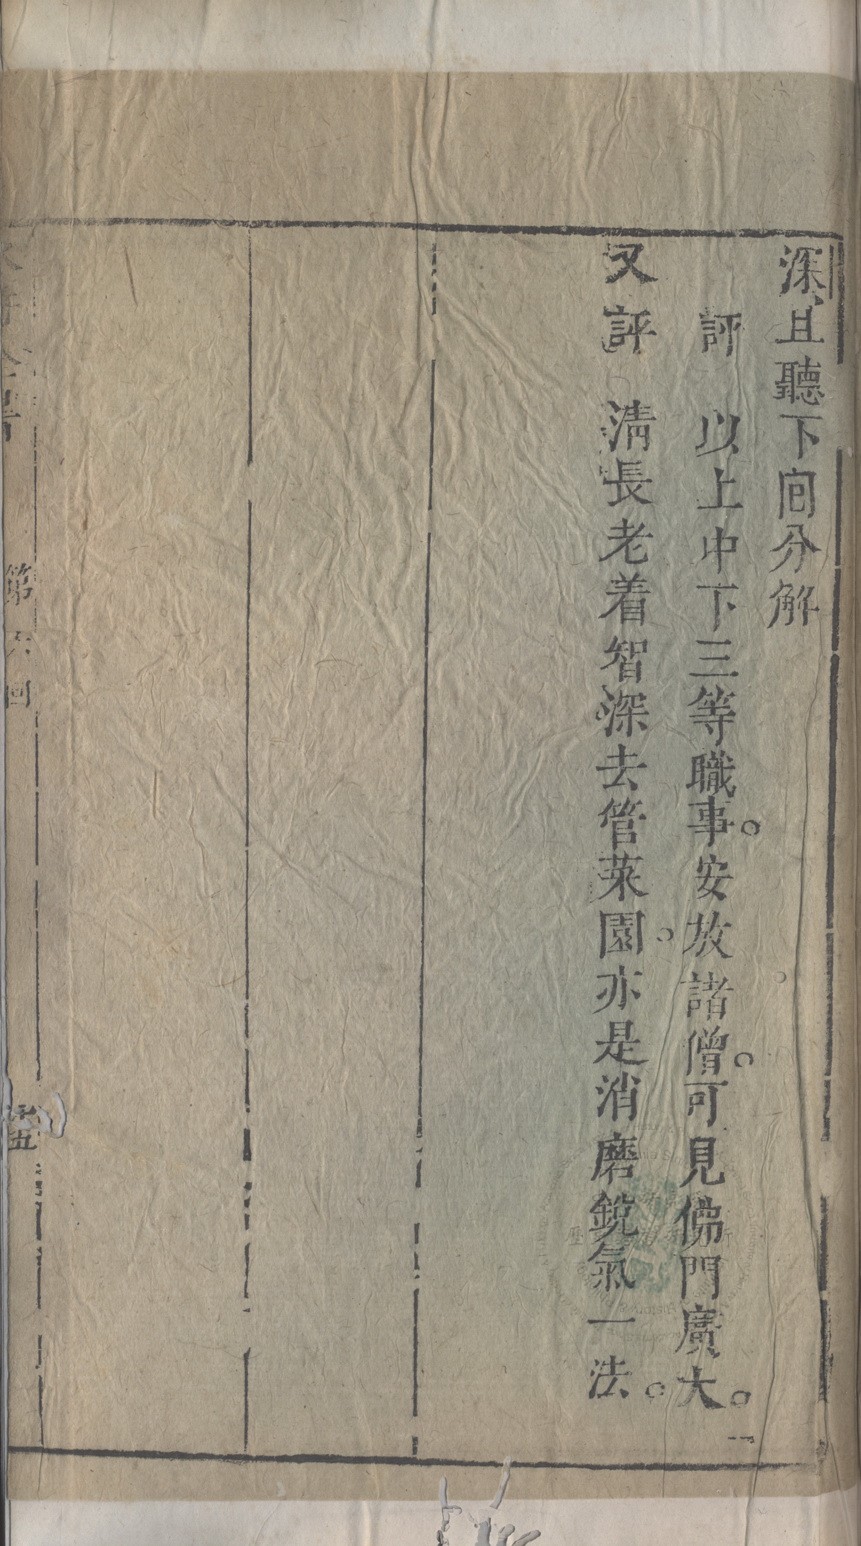 深且聽下囘分解
評 以上中下三等職事。安放諸僧。可見佛門廣大。
又評 淸長老着智深去管菜園。亦是消磨銳氣一法。
第六回